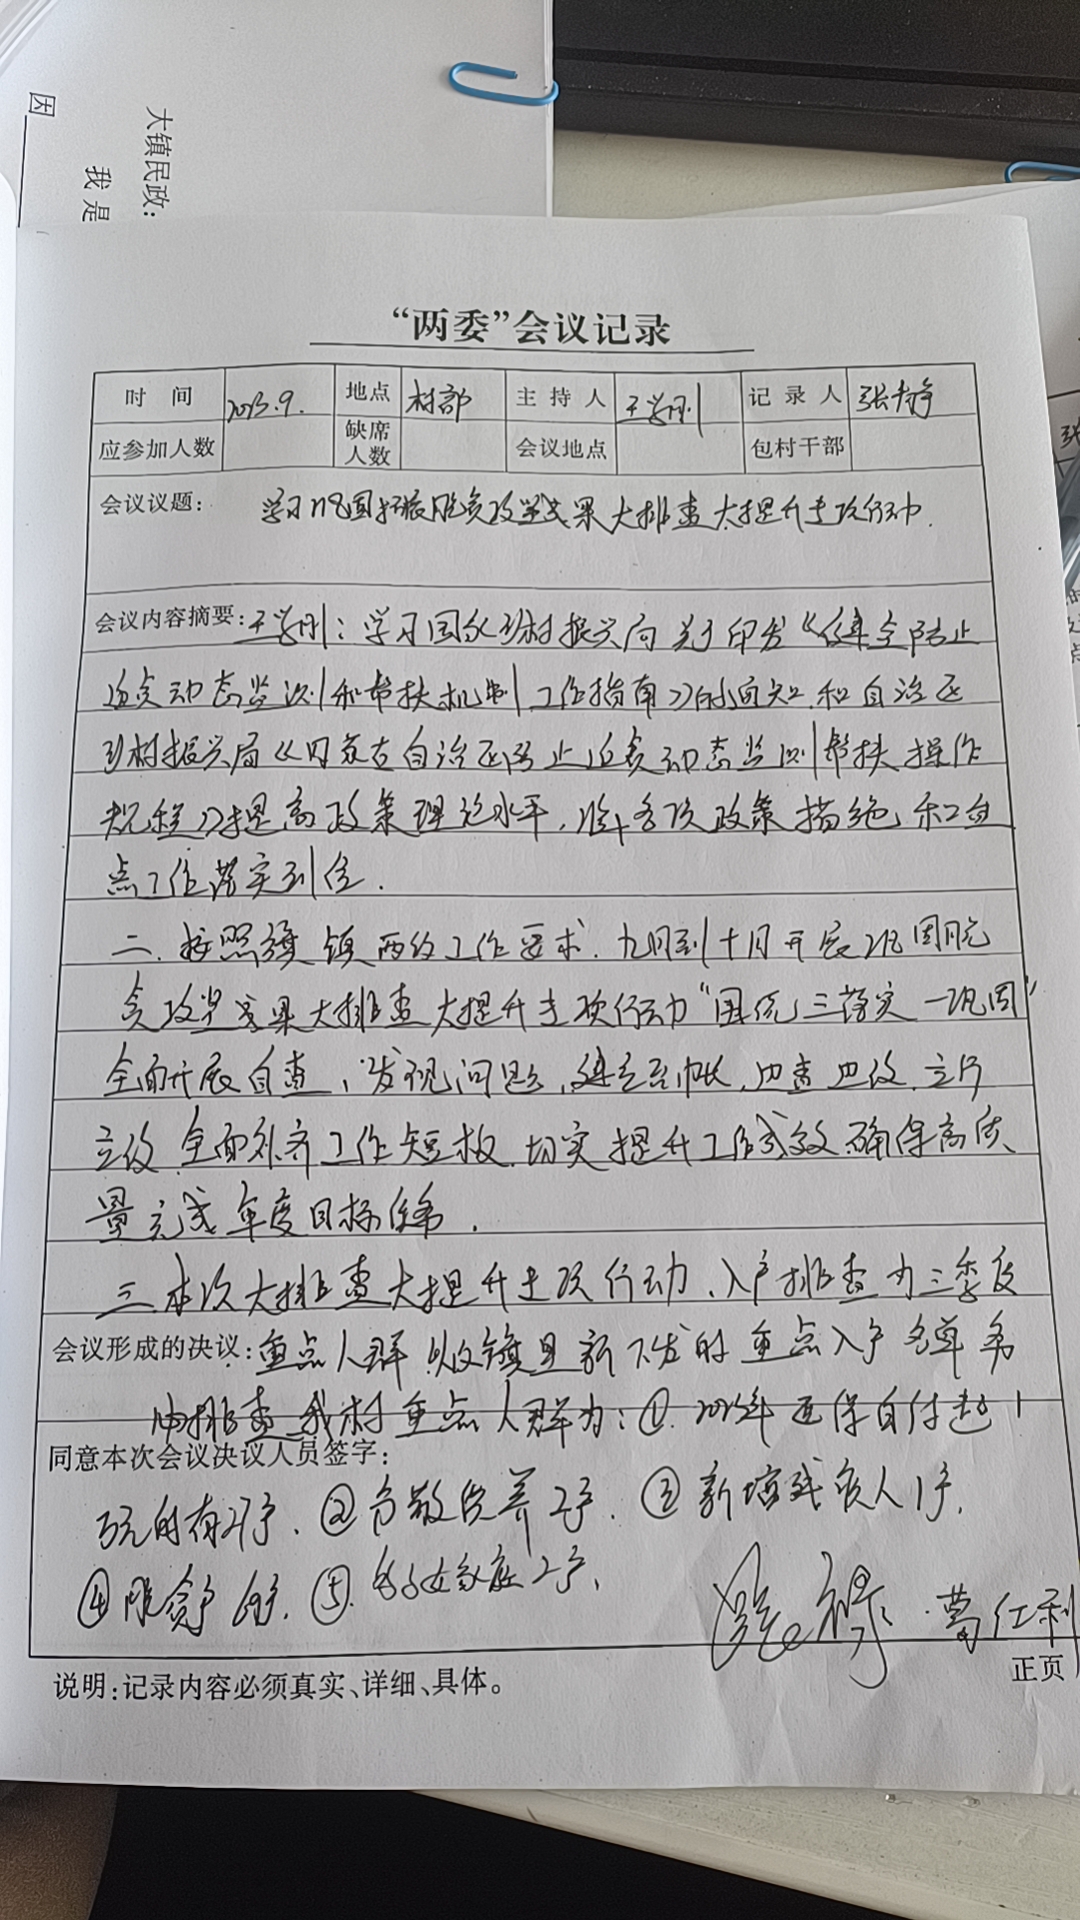 因
大镇民政:
我是
“两委”会议记录
时 间 2023.9. 地点 村部 主 持 人 王学刚 记 录 人 张静
应参加人数 缺席人数 会议地点 包村干部
会议议题: 学习巩固拓展脱贫攻坚成果大排查大提升专项行动.
会议内容摘要: 王学刚: 学习国家乡村振兴局关于印发《健全防止
返贫动态监测和帮扶机制工作指南》的通知.和自治区
乡村振兴局《内蒙古自治区防止返贫动态监测帮扶操作
规程》提高政策理论水平,将各项政策措施和重
点工作落实到位.
二.按照旗镇两级工作要求.九月到十月开展巩固脱
贫攻坚成果大排查大提升专项行动“国统三落实一巩固”
全面开展自查,发现问题,建立台帐,边查边改.立行
立改.全面补齐工作短板.切实提升工作成效.确保高质
量完成年度目标任务.
三.本次大排查大提升专项行动、入户排查为三季度
会议形成的决议: 重点人群 以及旗县新下发的重点入户名单务
由排查我村重点人群为:①.2023年医保自付超1
同意本次会议决议人员签字:
万元的有2户、②分散供养2户、③新增残疾人1户.
④脱贫户 6户.⑤.多子女家庭2户、
葛仁利
说明:记录内容必须真实、详细、具体。
正页